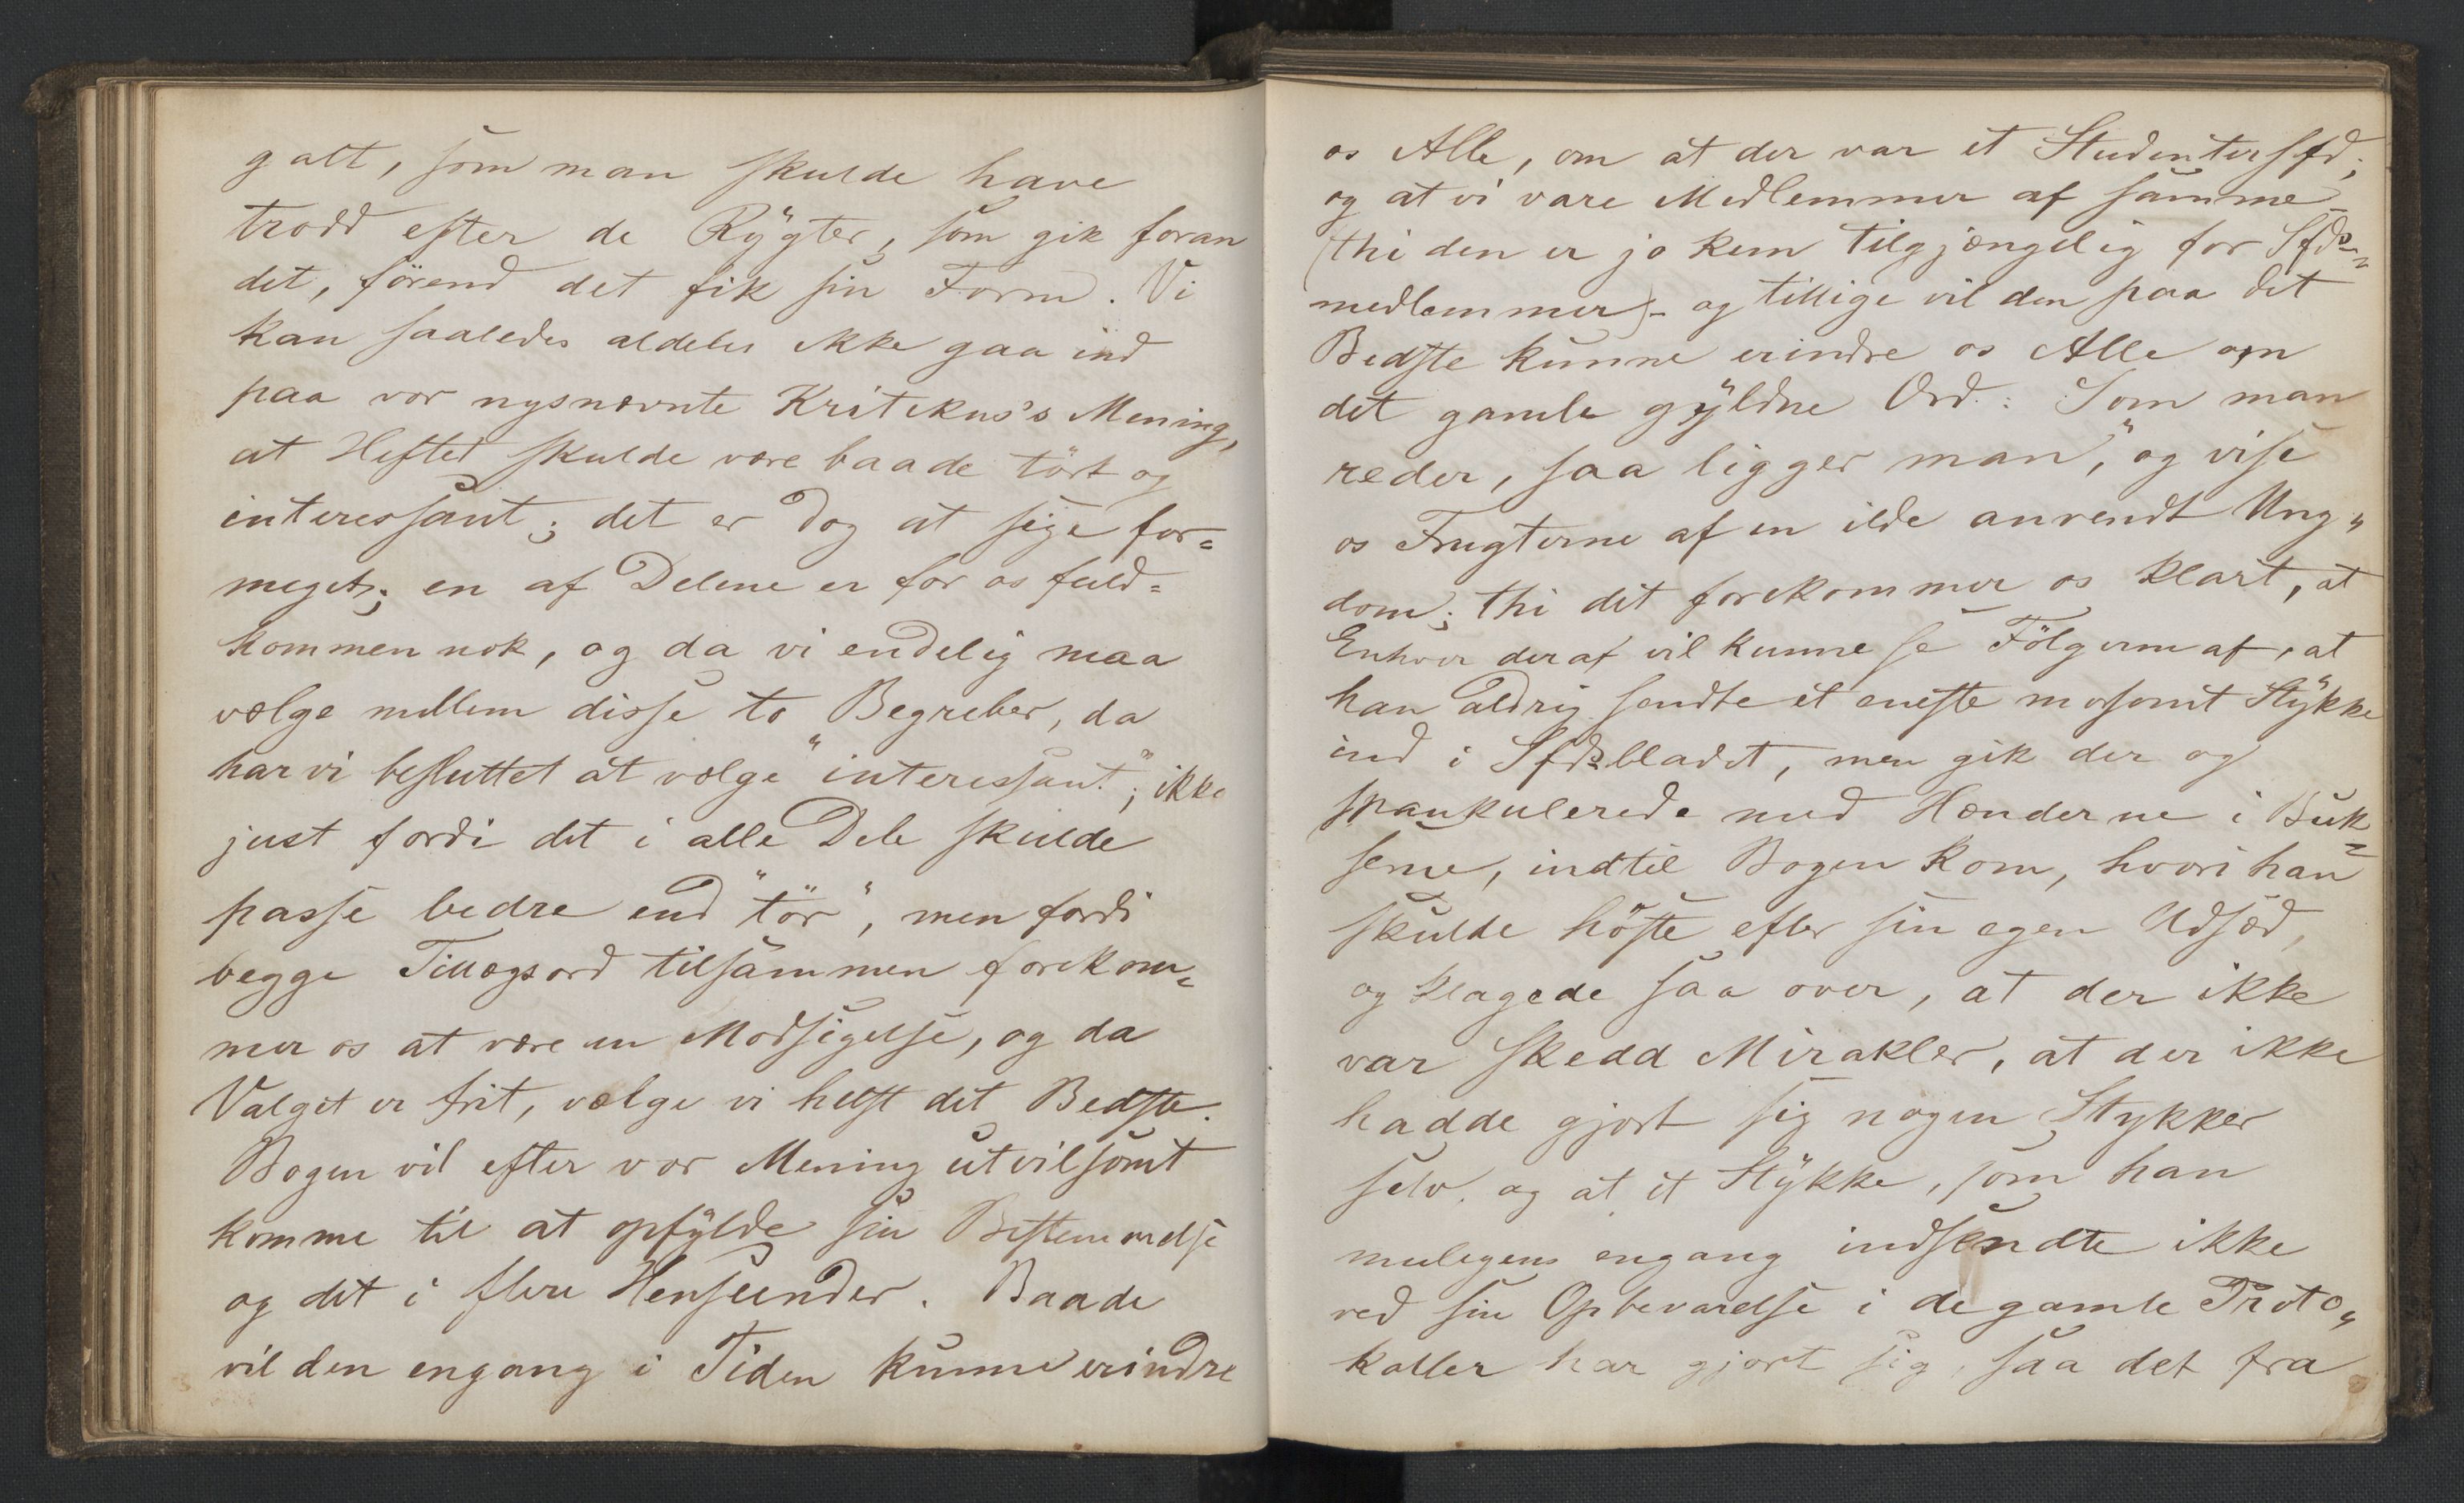 galt, som man skulde have
trodd efter de Rÿgter, som gik foran
det, förend det fik sin Form. Vi
kan saaledes aldeles ikke gaa ind
paa vor nysnævnte Kritikus's Mening,
at Heftet skulde være baade tört og
interessant; det er dog at sige for=
meget; en af Delene er for os fuld=
kommen nok, og da vi endelig maa
vælge mellem disse to Begreber, da
har vi besluttet at vælge "interessant"; ikke
just fordi det i alle Dele skulde
passe bedre end "tör", men fordi
begge Tillægsord tilsammen forekom=
mer os at være en Modsigelse, og da
Valget er frit, vælge vi helst det Bedste.
Bogen vil efter vor Mening utvilsomt
komme til at opfÿlde sin Bestemmelse
og det i flere Henseender. Baade
vil den engang i Tiden kunne erindre
os Alle, om at der var et Studentersfd,
og at vi vare Medlemmer af samme
(thi den er jo kun tilgjængelig for Sfds=
medlemmer) - og tillige vil den paa det
Bedste kunne erindre os Alle om
det gamle gÿldne Ord: Som man
reder, saa ligger man," og vise
os Frugterne af en ilde anvendt Ung=
dom; thi det forekommer os klart, at
Enhver deraf vil kunne se Fölgerne af, at
han aldrig sendte et eneste morsomt Stÿkke
ind i Sfdsbladet, men gik der og
spankulerede med Hænderne i Buk=
serne, indtil Bogen kom, hvori han
skulde höste efter sin egen Udsæd,
og klagede saa over, at der ikke
var skedd Mirakler, at der ikke
hadde gjort sig nogen Stykker
selv. og at et Stÿkke, som han
muligens engang indsendte ikke
ved sin Opbevarelse i de gamle Proto=
koller har gjort sig, saa det fra